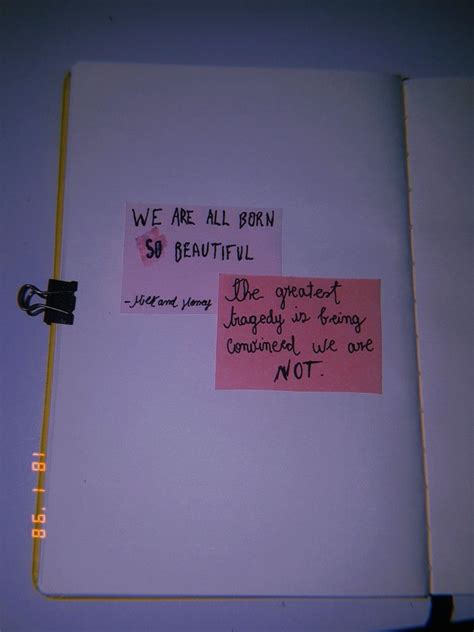 WE ARE ALL BORN
SO BEAUTIFUL
-Milk and Honey
the greatest
tragedy is being
convinced we are
NOT.
98 1 18